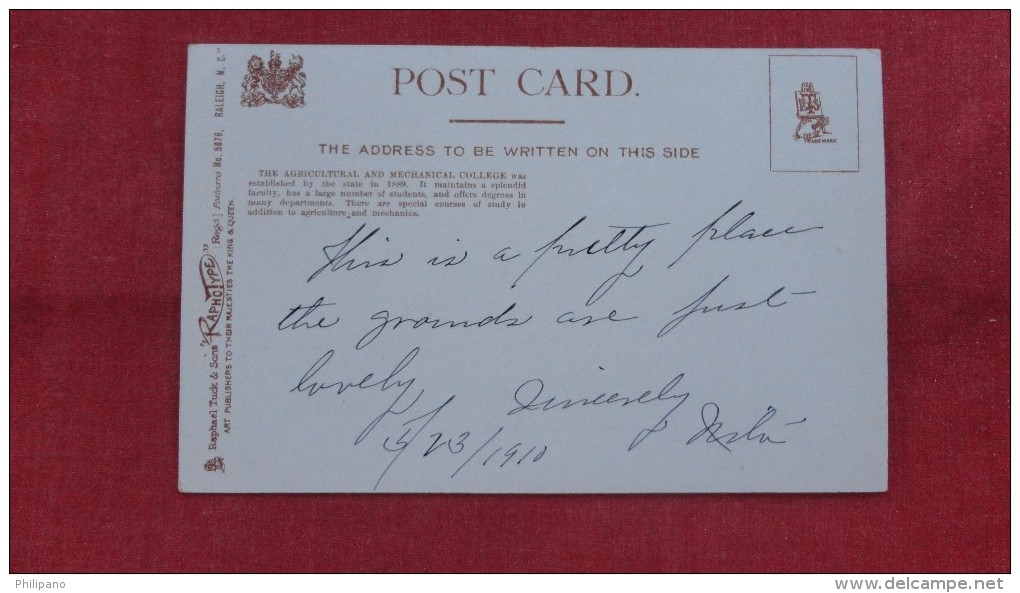 POST CARD.
THE ADDRESS TO BE WRITTEN ON THIS SIDE
THE AGRICULTURAL AND MECHANICAL COLLEGE was
established by the state in 1889. It maintains a splendid
faculty, has a large number of students, and offers degrees in
many departments. There are special courses of study in
addition to agriculture and mechanics.
This is a pretty place
the grounds are just
lovely
Sincerely
5/23/1910
Raphael Tuck & Sons' "RAPHOTYPE" [Regd.] Postcard No. 5076, RALEIGH, N. C."
ART PUBLISHERS TO THEIR MAJESTIES THE KING & QUEEN.
TRADE MARK
Philipano
www.delcampe.net